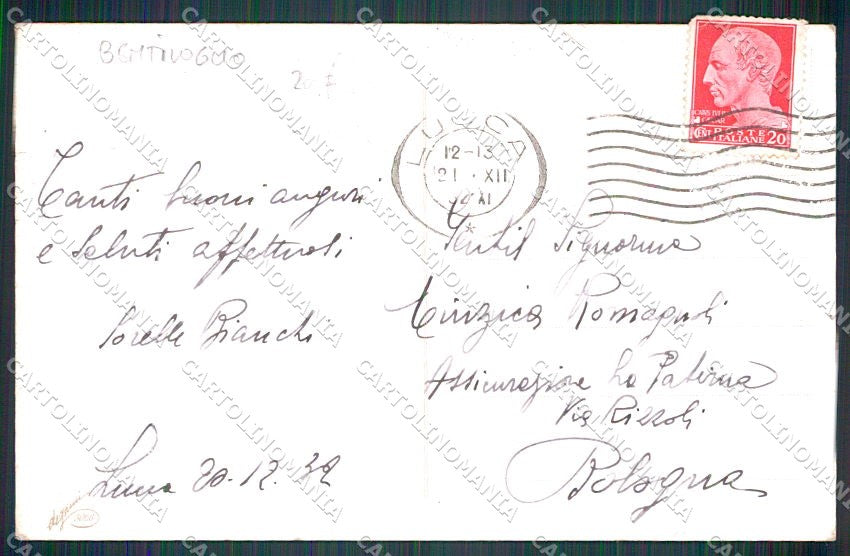 BENTIVOGLIO
LUCCA
12-13
21 · XII
XI
POSTE
CENT ITALIANE 20
Tanti buoni auguri
e saluti affettuosi
Sorelle Bianchi
Lucca 20.12.32
Gentil Signorina
Cinzica Romagnoli
Assicurazione La Paterna
Via Rizzoli
Bologna
CARTOLINOMANIA